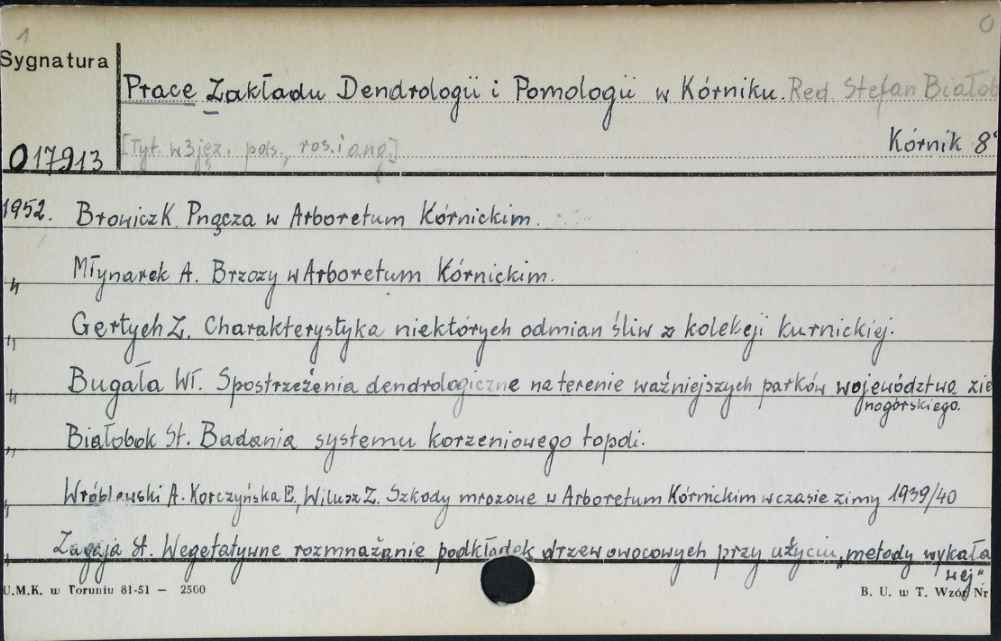 1 0
Sygnatura
Prace Zakładu Dendrologii i Pomologii w Kórniku. Red Stefan Białob
[Tyt. w 3 jęz. pols., ros. i ang] Kórnik 8°
017913
1952. Browicz K. Pnącza w Arboretum Kórnickim.
" Młynarek A. Brzozy w Arboretum Kórnickim.
" Gertych Z. Charakterystyka niektórych odmian śliw z kolekcji kurnickiej.
" Bugała Wł. Spostrzeżenia dendrologiczne na terenie ważniejszych parków województwa zie
nogórskiego.
" Białobok St. Badania systemu korzeniowego topoli.
" Wróblewski A. Korczyńska E, Wilusz Z. Szkody mrozowe w Arboretum Kórnickim w czasie zimy 1939/40
" Zagaja St. Wegetatywne rozmnażanie podkładek drzew owocowych przy użyciu „metody wykała
wej"
U.M.K. w Toruniu 81-51 — 2500 B. U. w T. Wzór Nr